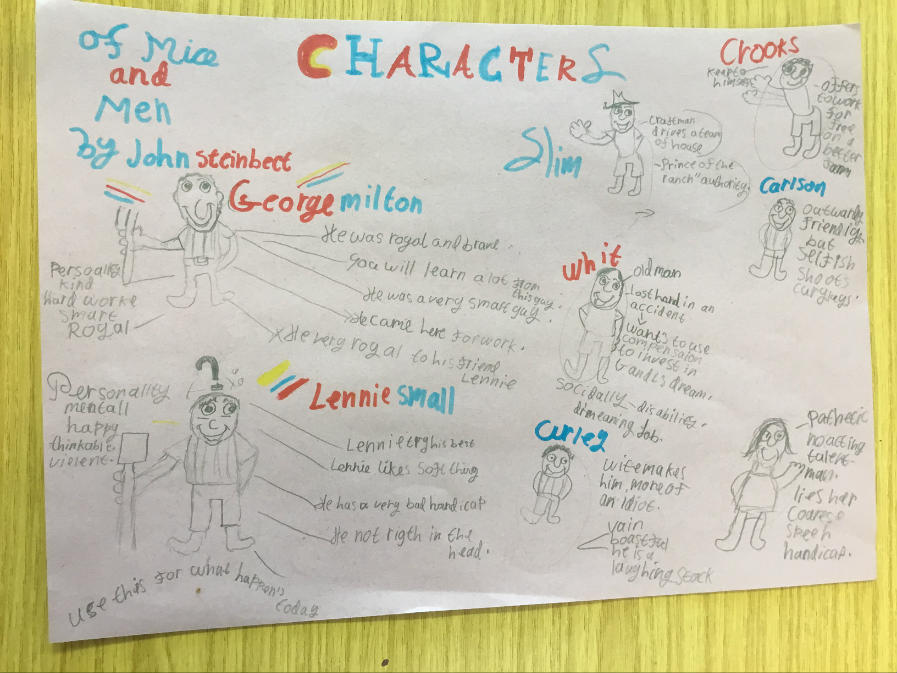 of Mice
and
Men
by John steinbect
CHARACTERS
George milton
Personally
kind
Hard worke
smart
Royal
He was royal and brave.
You will learn a lot from
this guy.
He was a very smart guy.
He came here for work.
He very royal to his friend
Lennie
Lennie small
Personality
mentall
happy
thinkable
violent.
Lennie try his best
Lennie likes soft thing
He has a very bad handicap
He not rigth in the
head.
use this for what happen's
today
Slim
craftman
drives a team
of house
Prince of the
ranch" authority.
Crooks
Keep to
himself
offers
to work
for
free
on a
better
farm
Carlson
outwardly
friendly
but
selfish
shoots
curgrays.
whit
old man
lost hand in an
accident
wants to use
compensaion
to invest in
G and L's dream.
socidally disabilies
dimeaning Job.
Curley
wife makes
him, more of
an idiot.
vain
boastful
he is a
laughing stock
Pathetic
no acting
talent
man.
lies her
Coarese
speeh
handicap.